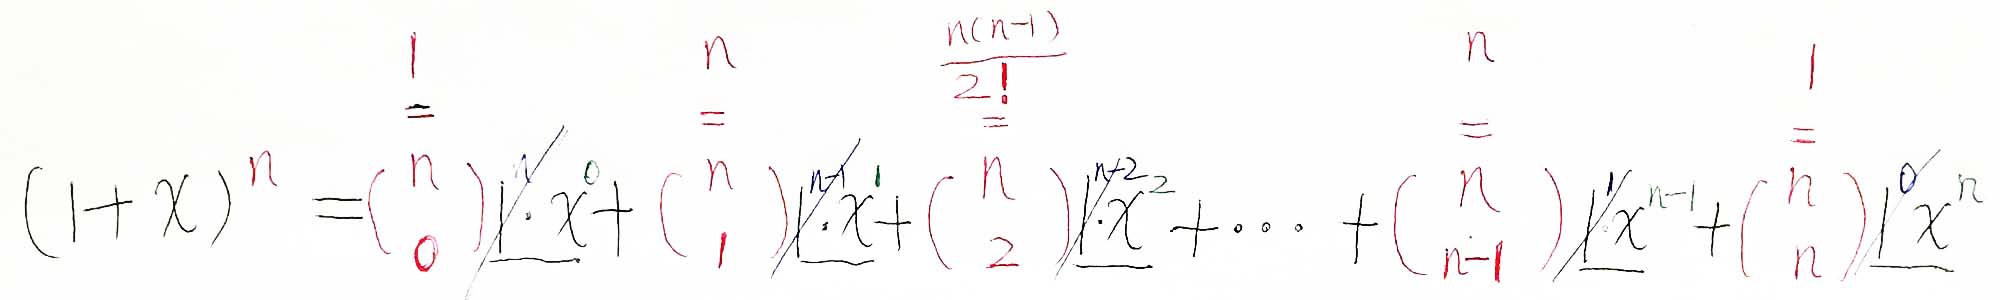 1 n n(n-1) n 1
2!
= = = = =
(1+x)^n = (n 0) 1^n · x^0 + (n 1) 1^n-1 · x^1 + (n 2) 1^n-2 · x^2 + ··· + (n n-1) 1^1 · x^n-1 + (n n) 1^0 x^n